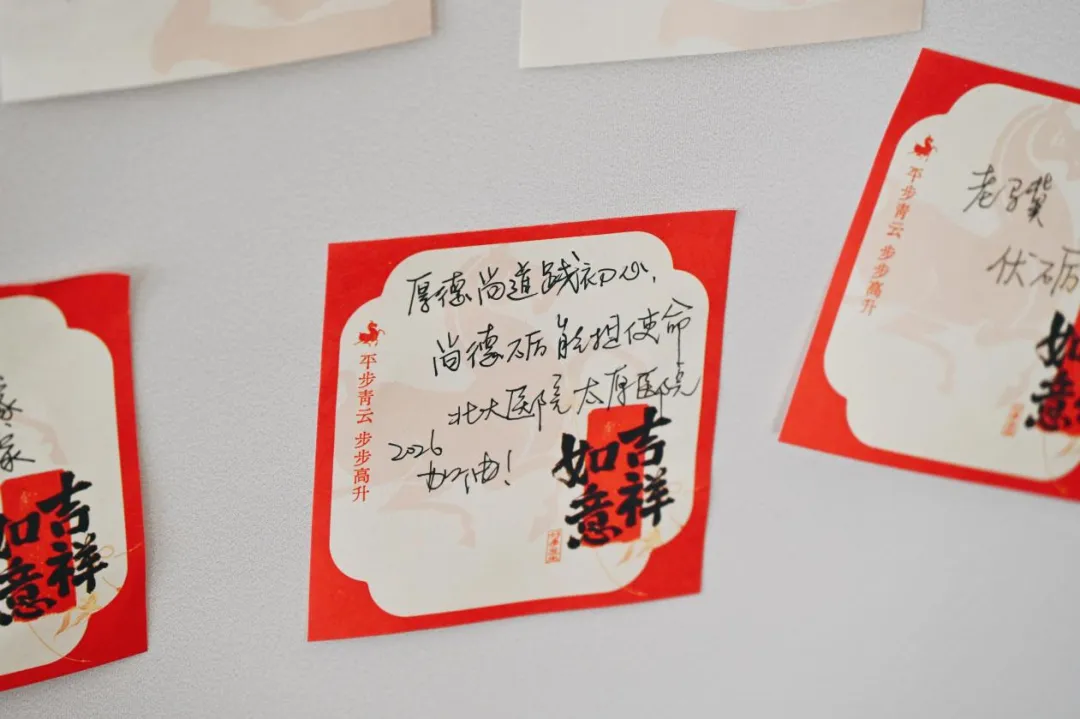 家
吉祥
如意
平步青云 步步高升
厚德尚道践初心,
尚德砺能担使命
北大医院太原医院
2026
加油!
吉祥
如意
平步青云 步步高升
老骥
伏砺
如意